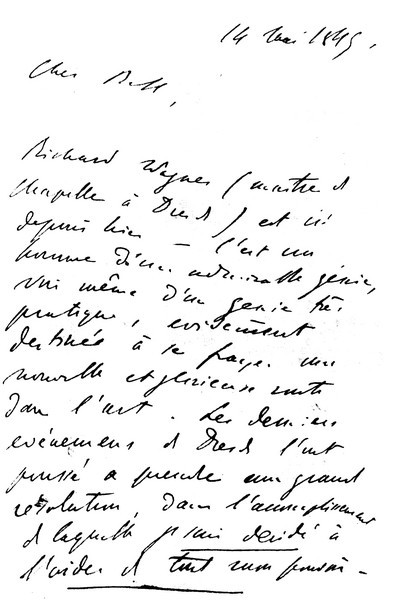 14 Mai 1849,
Cher Bell,
Richard Wagner (maitre d
chapelle à Dresd) est ici
depuis hier — C'est un
homme d'un admirable génie,
voir même d'un genie très
pratique, evidement
destinée à se frayer une
nouvelle et glorieuse route
dans l'art. Les derniers
evénemens d Dresd l'ont
poussé a prendre une grand
résolution, dans l'accomplissement
d laquelle je suis decidé à
l'aider d tout mon pouvoir —